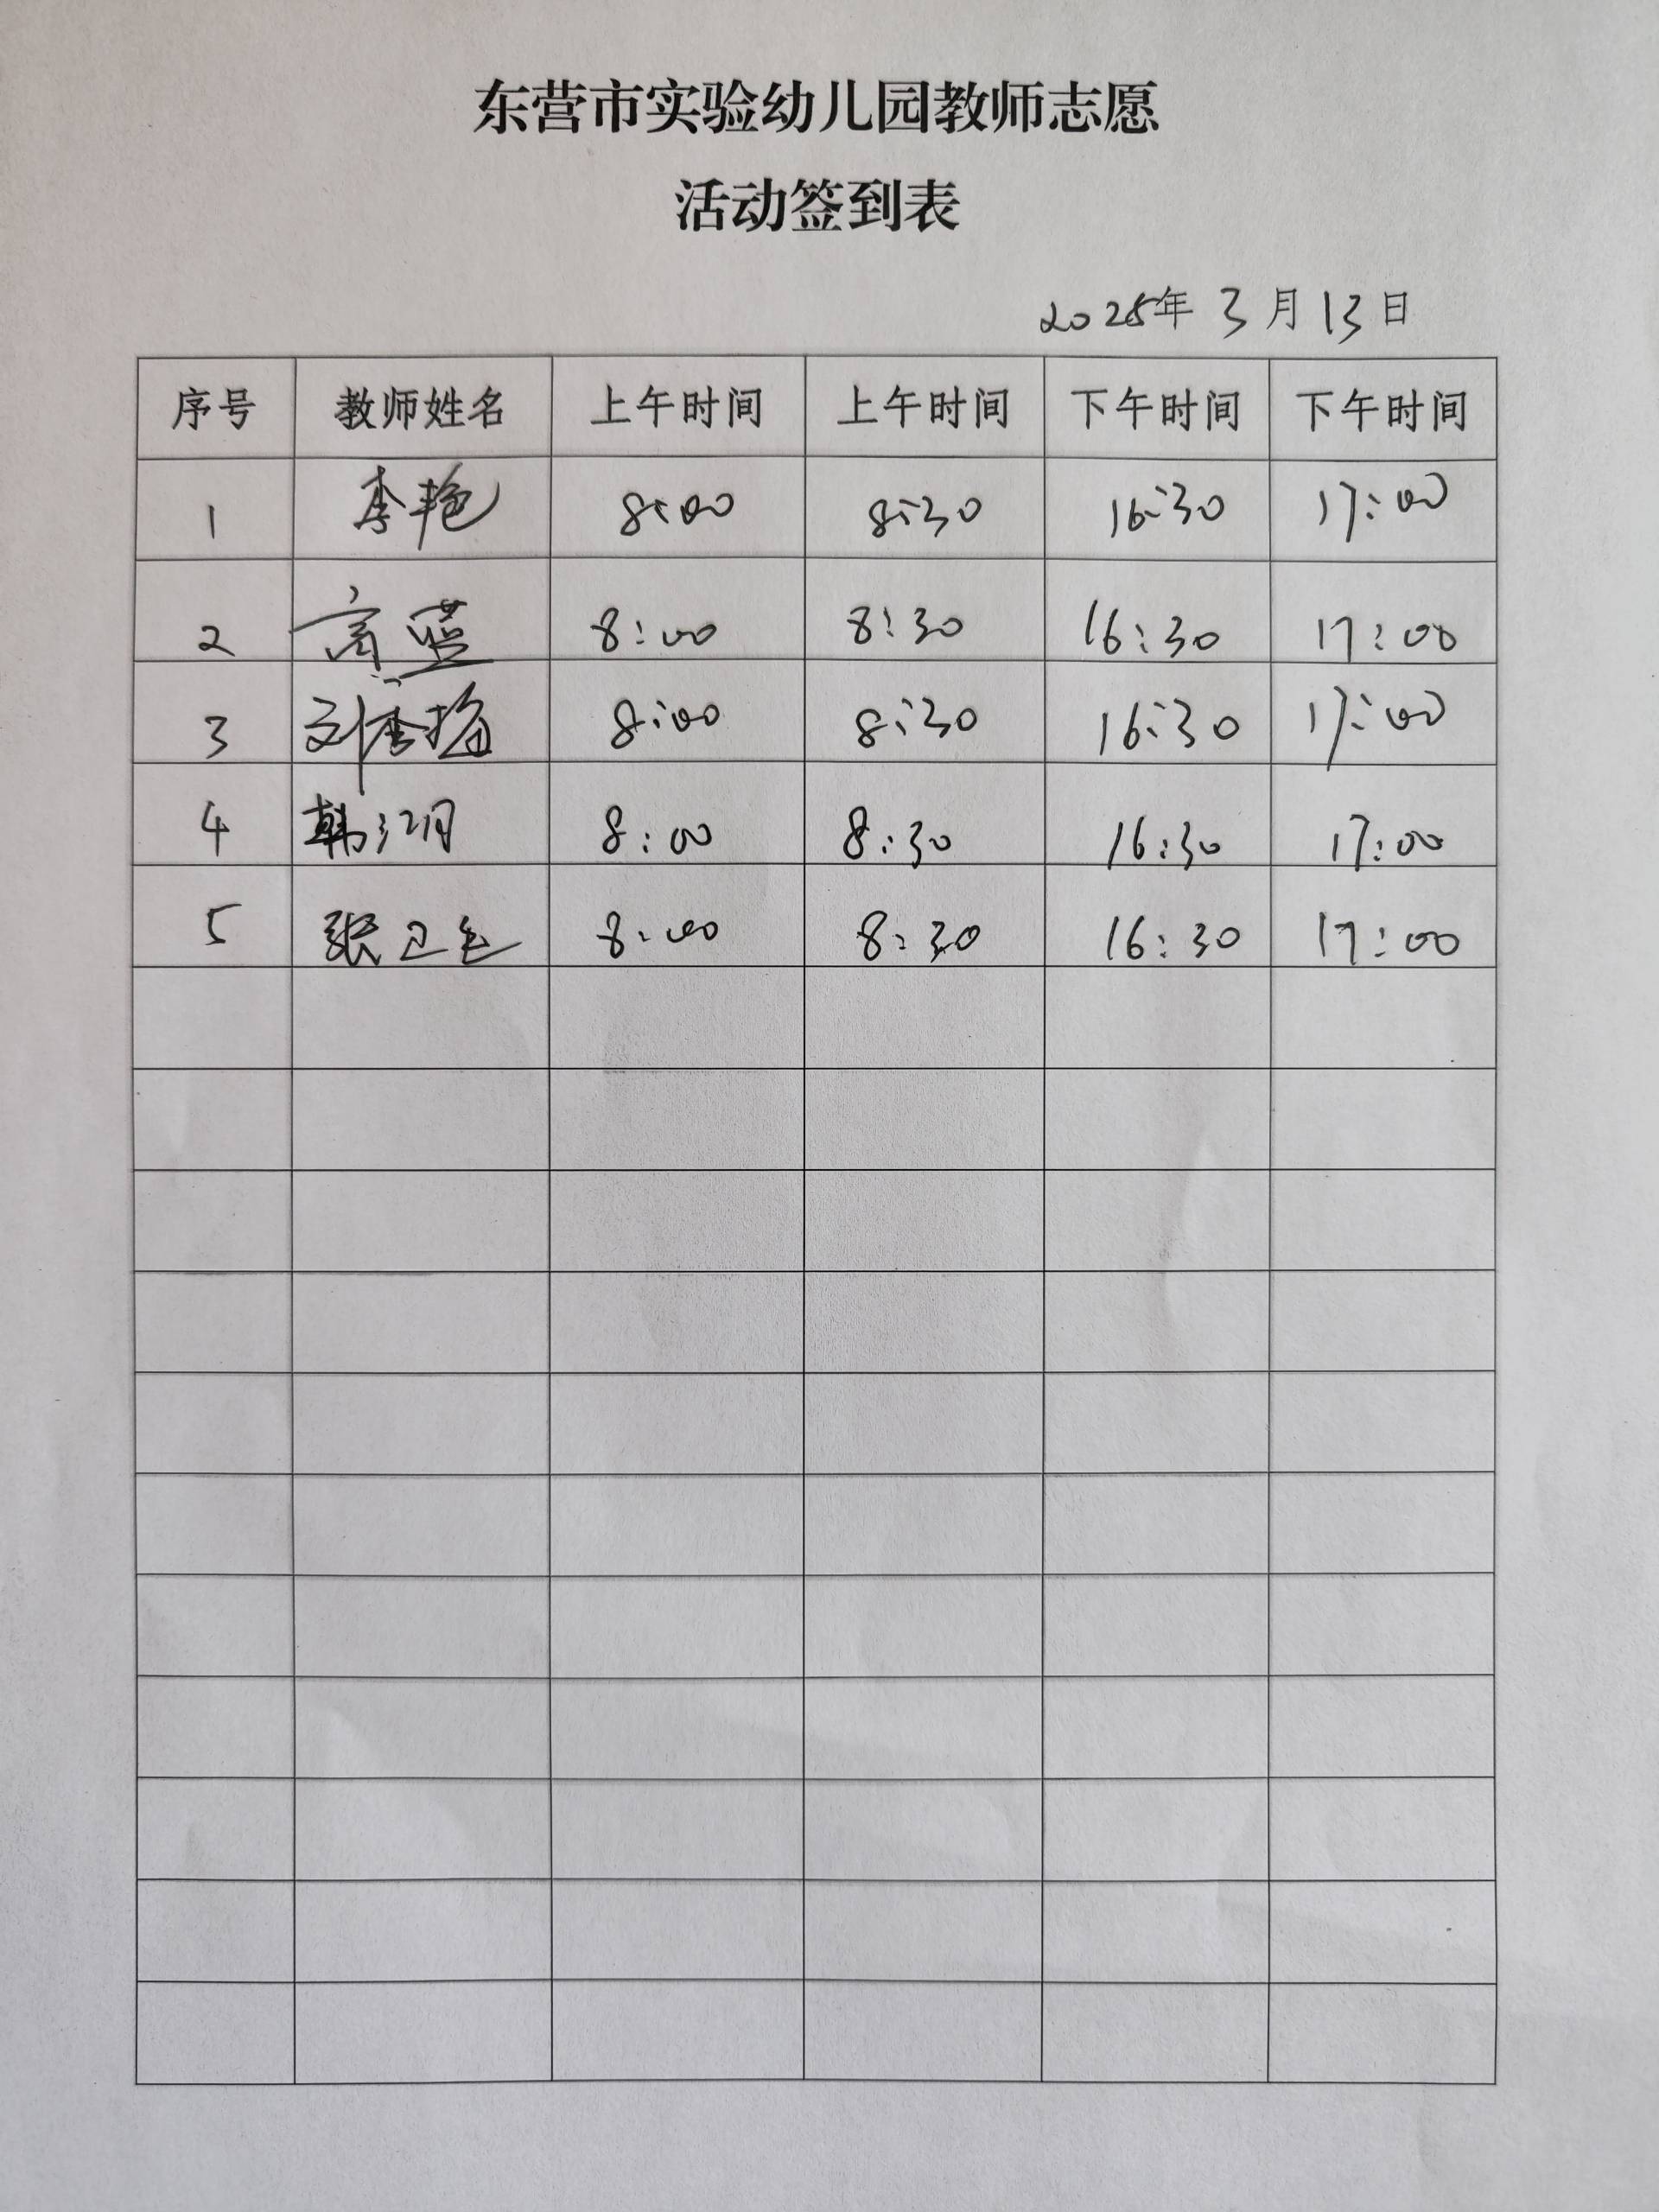 东营市实验幼儿园教师志愿
活动签到表
2025年 3月 13日
序号 教师姓名 上午时间 上午时间 下午时间 下午时间
1 李艳 8:00 8:30 16:30 17:00
2 高蓝 8:00 8:30 16:30 17:00
3 8:00 8:30 16:30 17:00
4 韩 8:00 8:30 16:30 17:00
5 张卫 8:00 8:30 16:30 17:00